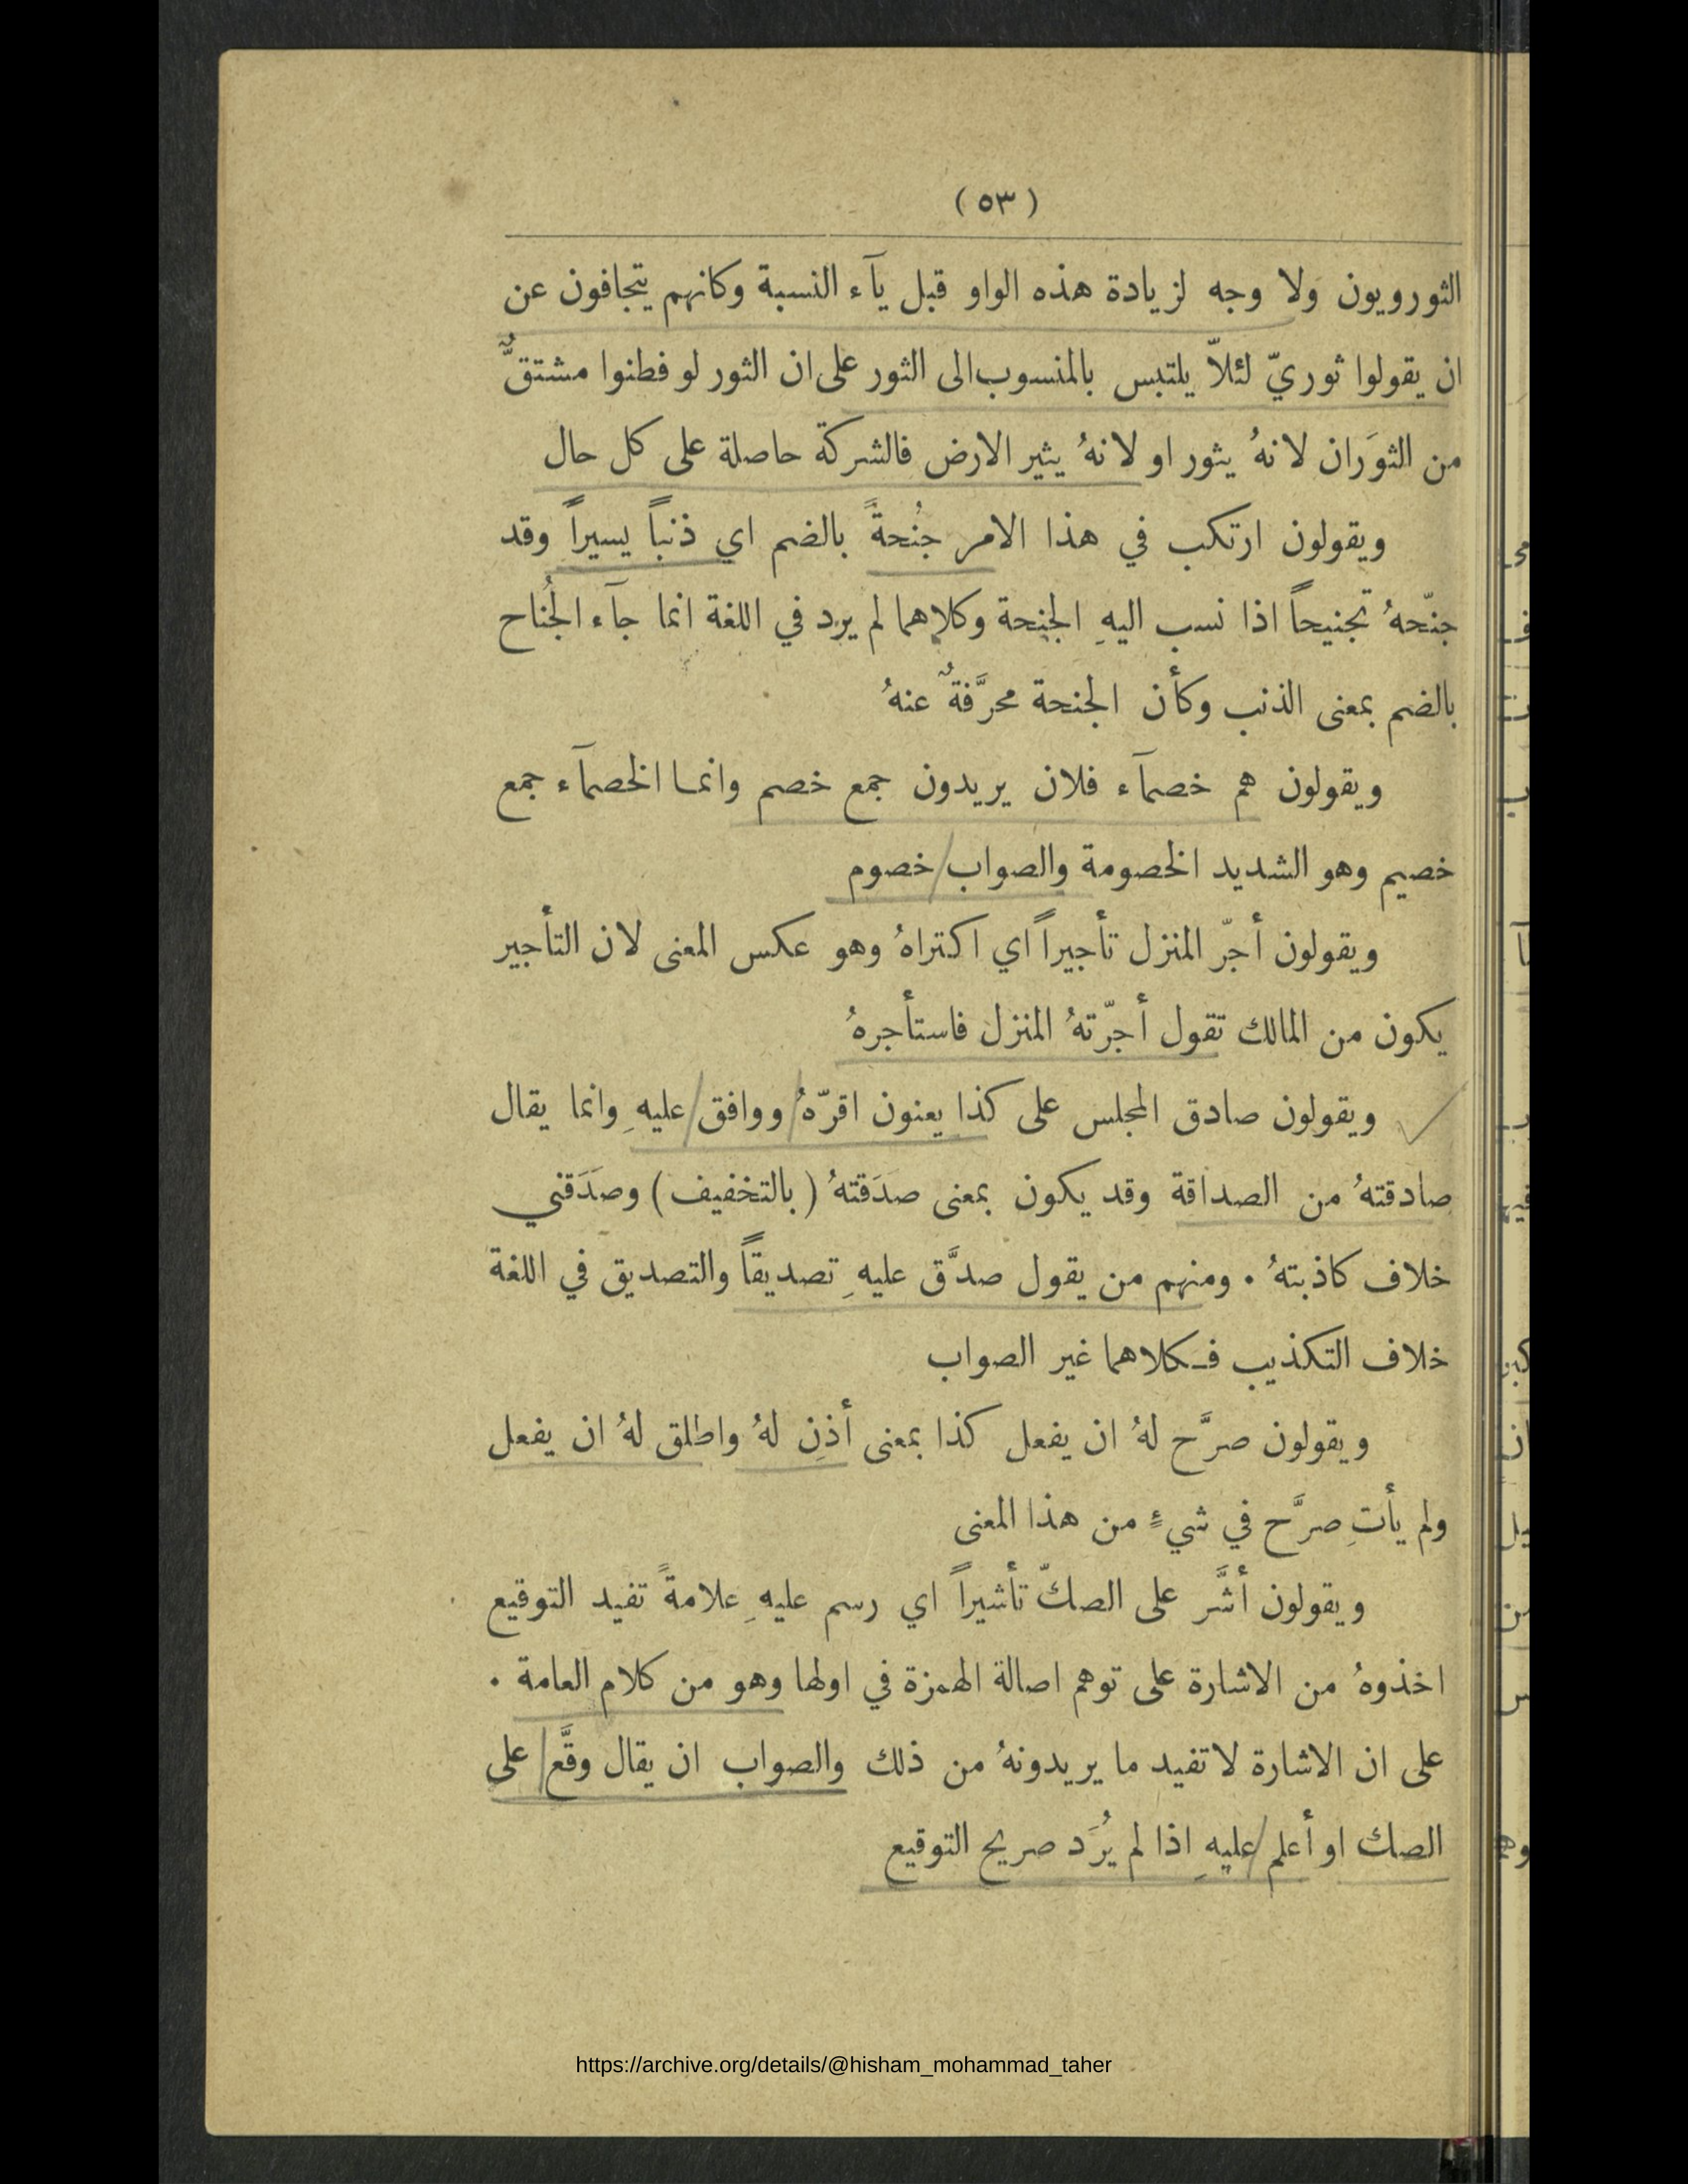 ( ٥٣ )
الثورويون ولا وجه لزيادة هذه الواو قبل يآء النسبة وكانهم يتجافون عن
ان يقولوا ثوريّ لئلاّ يلتبس بالمنسوب الى الثور على ان الثور لو فطنوا مشتقٌّ
من الثوَران لانهُ يثور او لانهُ يثير الارض فالشركة حاصلة على كل حال
ويقولون ارتكب في هذا الامر جُنحةً بالضم اي ذنباً يسيراً وقد
جنّحهُ تجنيحاً اذا نسب اليهِ الجنحة وكلاهما لم يرد في اللغة انما جآء الجُناح
بالضم بمعنى الذنب وكأن الجنحة محرَّفةٌ عنهُ
ويقولون هم خصمآء فلان يريدون جمع خصم وانما الخصمآء جمع
خصيم وهو الشديد الخصومة والصواب خصوم
ويقولون أجّر المنزل تأجيراً اي اكتراهُ وهو عكس المعنى لان التأجير
يكون من المالك تقول أجّرتهُ المنزل فاستأجرهُ
ويقولون صادق المجلس على كذا يعنون اقرّهُ ووافق عليهِ وانما يقال
صادقتهُ من الصداقة وقد يكون بمعنى صدَقتهُ ( بالتخفيف ) وصَدَقني
خلاف كاذبتهُ . ومنهم من يقول صدَّق عليهِ تصديقاً والتصديق في اللغة
خلاف التكذيب فكلاهما غير الصواب
ويقولون صرَّح لهُ ان يفعل كذا بمعنى أذِن لهُ واطلق لهُ ان يفعل
ولم يأتِ صرَّح في شيءٍ من هذا المعنى
ويقولون أشَّر على الصكّ تأشيراً اي رسم عليهِ علامةً تفيد التوقيع
اخذوهُ من الاشارة على توهم اصالة الهمزة في اولها وهو من كلام العامة .
على ان الاشارة لا تفيد ما يريدونهُ من ذلك والصواب ان يقال وقَّع على
الصك او أعلم عليهِ اذا لم يُرَد صريح التوقيع
https://archive.org/details/@hisham_mohammad_taher